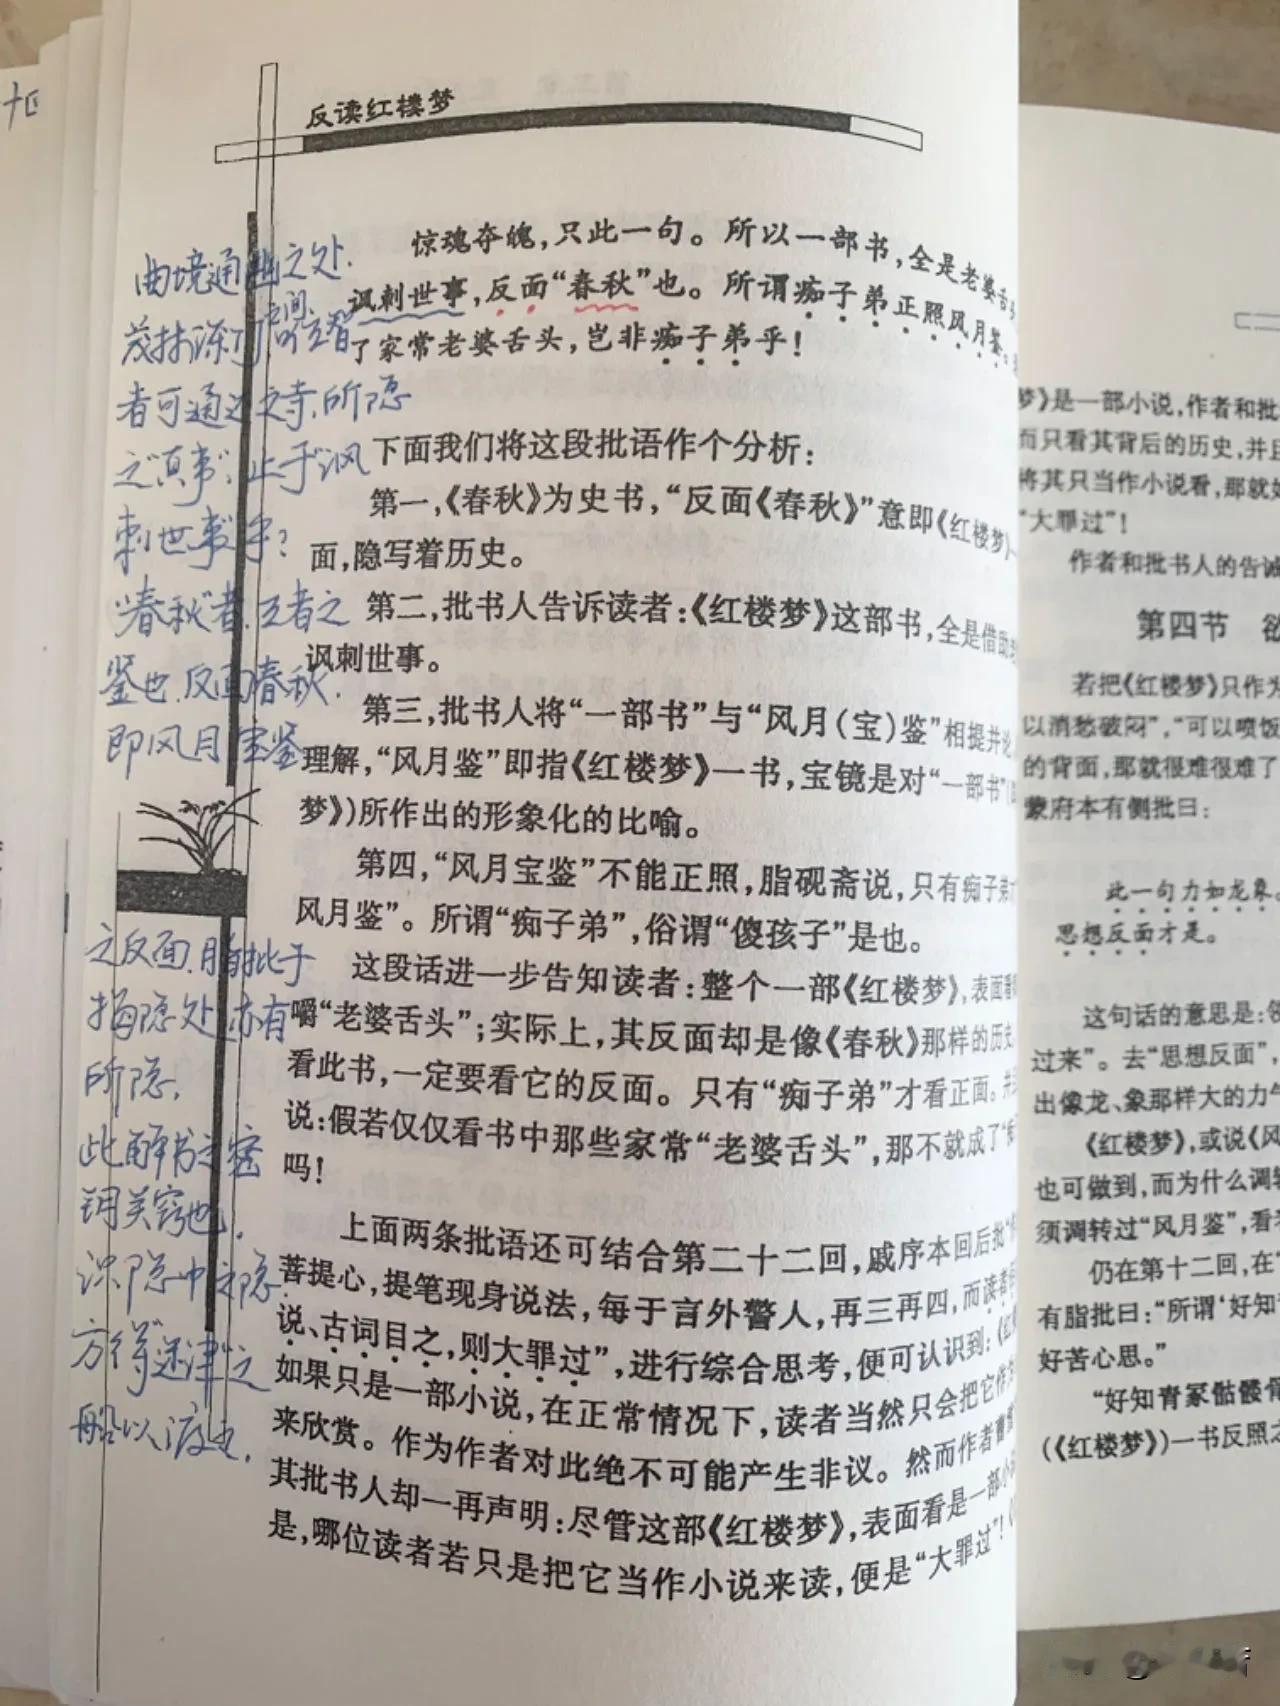 反读红楼梦
惊魂夺魄，只此一句。所以一部书，全是老婆舌
讽刺世事，反面“春秋”也。所谓痴子弟正照风月鉴。
了家常老婆舌头，岂非痴子弟乎！
下面我们将这段批语作个分析：
第一，《春秋》为史书，“反面《春秋》”意即《红楼梦》
面，隐写着历史。
第二，批书人告诉读者：《红楼梦》这部书，全是借助
讽刺世事。
第三，批书人将“一部书”与“风月（宝）鉴”相提并论
理解，“风月鉴”即指《红楼梦》一书，宝镜是对“一部书”
梦》）所作出的形象化的比喻。
第四，“风月宝鉴”不能正照，脂砚斋说，只有痴子弟
风月鉴”。所谓“痴子弟”，俗谓“傻孩子”是也。
这段话进一步告知读者：整个一部《红楼梦》，表面看
嚼“老婆舌头”；实际上，其反面却是像《春秋》那样的历史
看此书，一定要看它的反面。只有“痴子弟”才看正面。并
说：假若仅仅看书中那些家常“老婆舌头”，那不就成了
吗！
上面两条批语还可结合第二十二回，戚序本回后批
菩提心，提笔现身说法，每于言外警人，再三再四，而读者
说、古词目之，则大罪过”，进行综合思考，便可认识到：《红
如果只是一部小说，在正常情况下，读者当然只会把它作
来欣赏。作为作者对此绝不可能产生非议。然而作者曹
其批书人却一再声明：尽管这部《红楼梦》，表面看是一部小
是，哪位读者若只是把它当作小说来读，便是“大罪过”！
曲境通幽之处.
茂林深
之间,
者可通达之寺.所隐
之“真事”,止于“讽
刺世事”乎?
“春秋”者,王者之
鉴也.反面春秋.
即风月宝鉴
之反面.脂批于
指隐处亦有
所隐.
此解书之密
钥关窍也.
识隐中之隐.
方得“迷津”之
船以渡之.
梦》是一部小说，作者和批
而只看其背后的历史，并且
将其只当作小说看，那就
“大罪过”！
作者和批书人的告诫
第四节 欲
若把《红楼梦》只作为
以消愁破闷”，“可以喷饭
的背面，那就很难很难了
蒙府本有侧批曰：
此一句力如龙象。
思想反面才是。
这句话的意思是：领
过来”。去“思想反面”，
出像龙、象那样大的力气
《红楼梦》，或说《风
也可做到，而为什么调转
须调转过“风月鉴”，看
仍在第十二回，在“
有脂批曰：“所谓‘好知
好苦心思。”
“好知青冢骷髅骨
（《红楼梦》）一书反照之